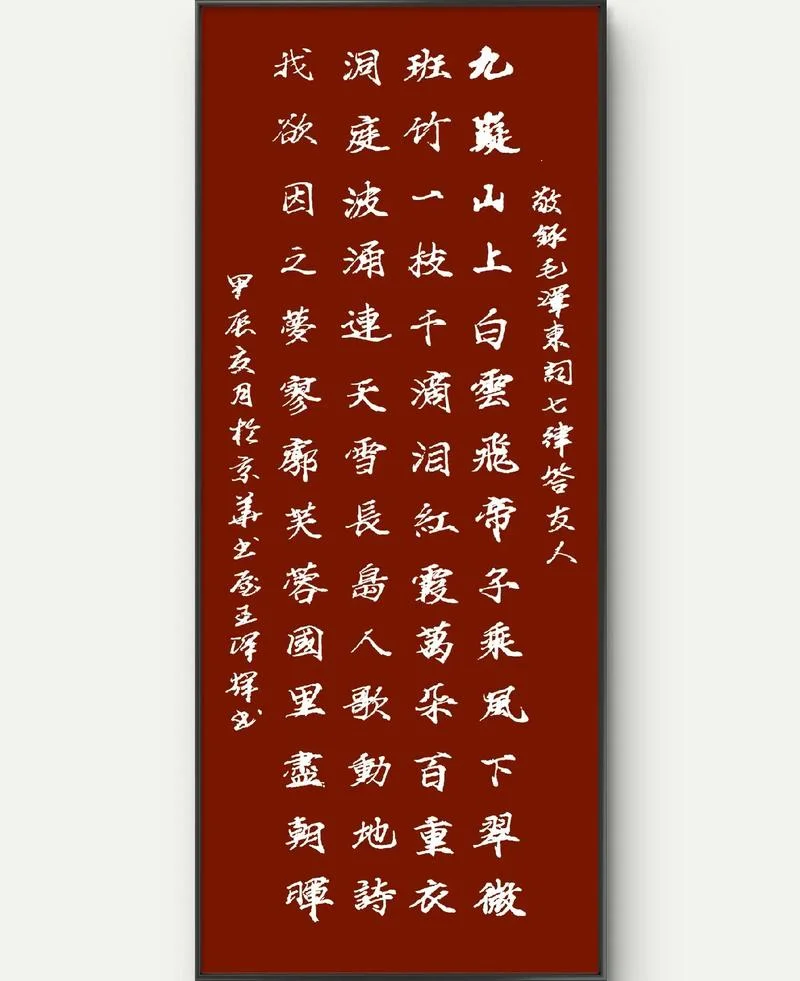 敬錄毛澤東詞七律答友人
九嶷山上白雲飛帝子乘風下翠微
班竹一枝千滴泪紅霞萬朵百重衣
洞庭波涌連天雪長島人歌動地詩
我欲因之夢寥廓芙蓉國里盡朝暉
甲辰亥月於京華書屋王澤輝書